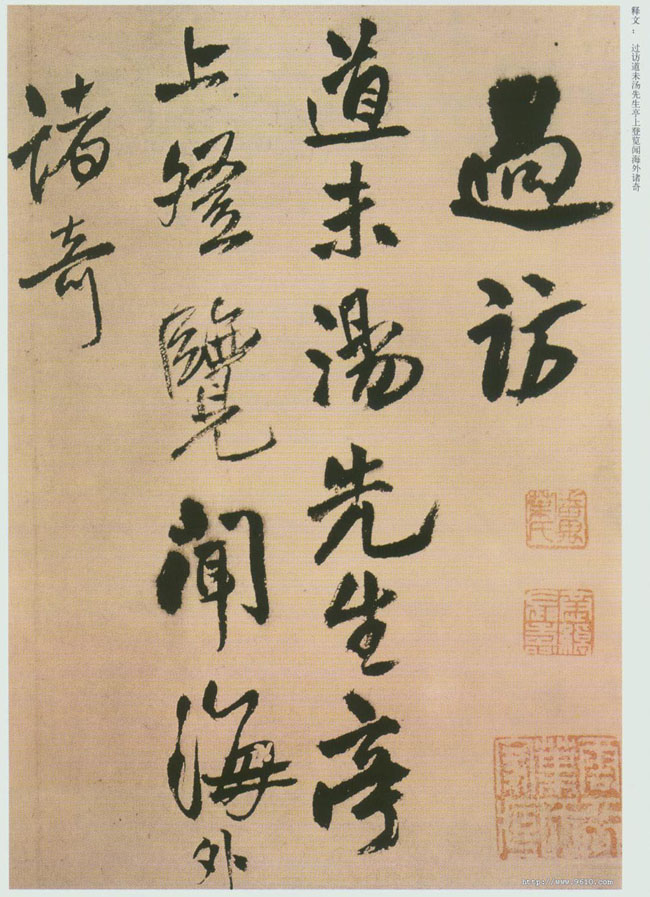 释文： 过访道未汤先生亭上登览闻海外诸奇
過訪
道未湯先生亭
上登覽聞海外
諸奇
http://www.9610.com